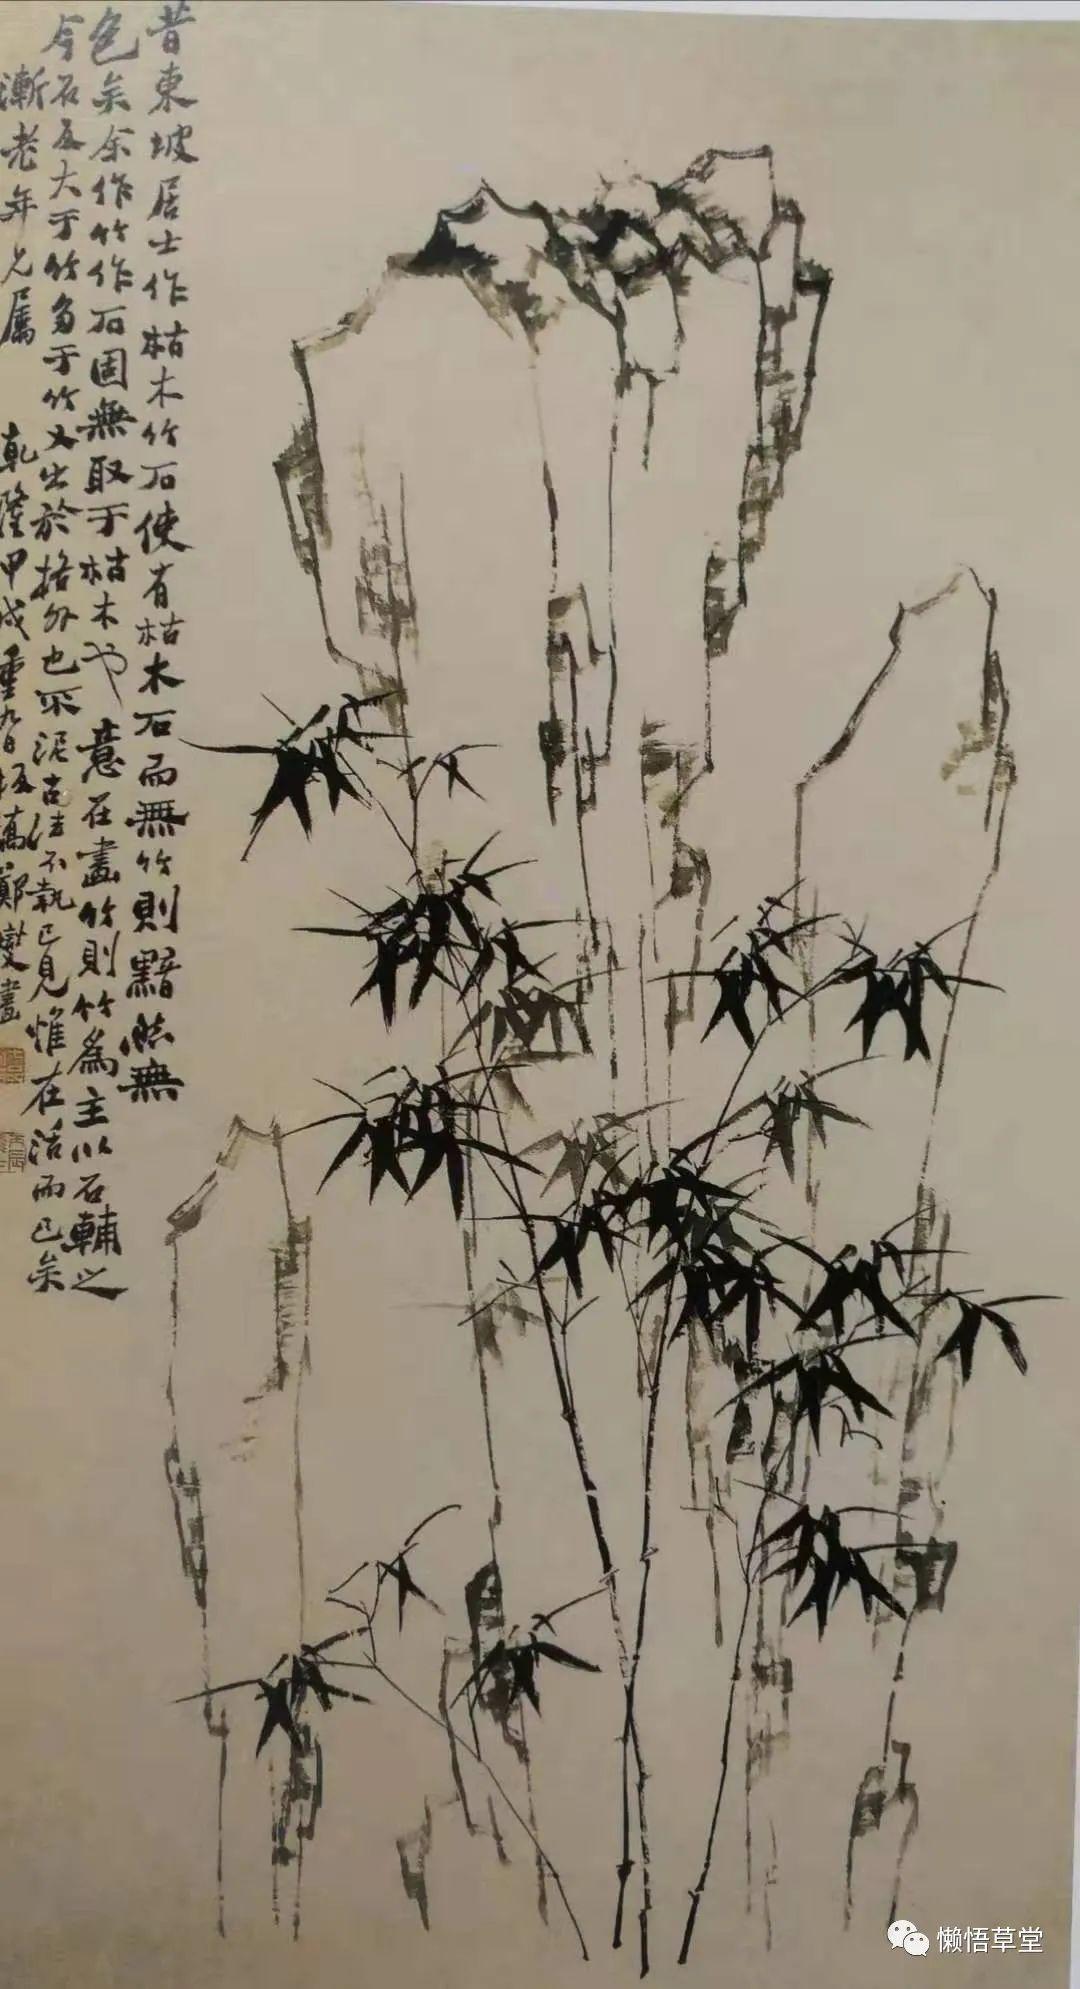 昔東坡居士作枯木竹石使有枯木石而無竹則黯然無
色矣余作竹作石固無取于枯木也意在畫竹則竹爲主以石輔之
今石反大于竹多于竹又出於格外也不泥古法不執己見惟在活而已矣
漸老年兄屬 乾隆甲戌重九日板橋鄭燮畫
懒悟草堂